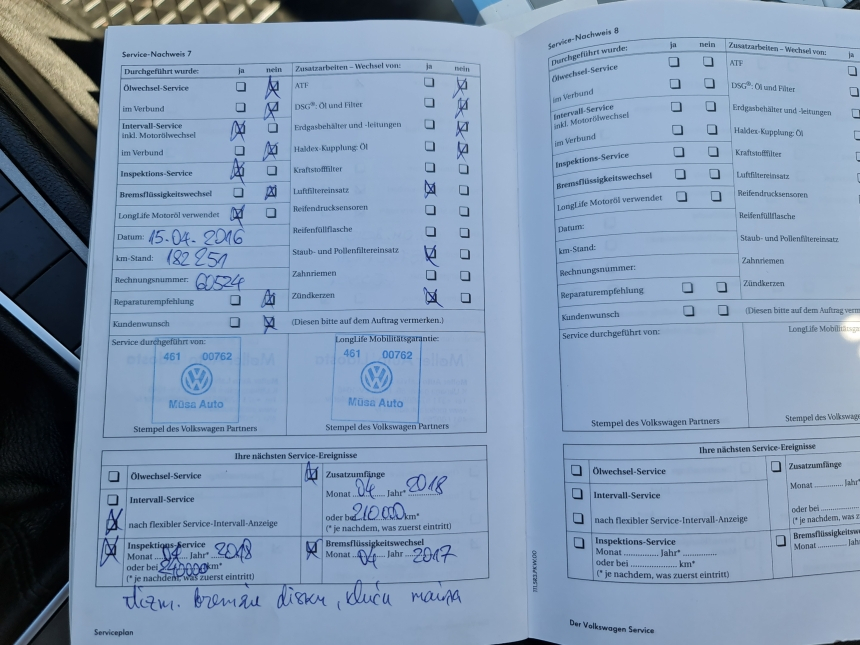 Service-Nachweis 7
Durchgeführt wurde: ja nein
Ölwechsel-Service
im Verbund
Intervall-Service
inkl. Motorölwechsel
im Verbund
Inspektions-Service
Bremsflüssigkeitswechsel
LongLife Motoröl verwendet
Datum: 15.04.2016
km-Stand: 182251
Rechnungsnummer: 60524
Reparaturempfehlung
Kundenwunsch
Zusatzarbeiten – Wechsel von: ja nein
ATF
DSG®: Öl und Filter
Erdgasbehälter und -leitungen
Haldex-Kupplung: Öl
Kraftstofffilter
Luftfiltereinsatz
Reifendrucksensoren
Reifenfüllflasche
Staub- und Pollenfiltereinsatz
Zahnriemen
Zündkerzen
(Diesen bitte auf dem Auftrag vermerken.)
Service durchgeführt von:
461 00762
Mūsa Auto
Stempel des Volkswagen Partners
LongLife Mobilitätsgarantie:
461 00762
Mūsa Auto
Stempel des Volkswagen Partners
Ihre nächsten Service-Ereignisse
Ölwechsel-Service
Intervall-Service
nach flexibler Service-Intervall-Anzeige
Zusatzumfänge
Monat 04 Jahr* 2018
oder bei 210000 km*
(* je nachdem, was zuerst eintritt)
Inspektions-Service
Monat 04 Jahr* 2018
oder bei km*
(* je nachdem, was zuerst eintritt)
Bremsflüssigkeitswechsel
Monat 04 Jahr 2017
bremžu disku,
Serviceplan
Service-Nachweis 8
Durchgeführt wurde: ja nein
Ölwechsel-Service
im Verbund
Intervall-Service
inkl. Motorölwechsel
im Verbund
Inspektions-Service
Bremsflüssigkeitswechsel
LongLife Motoröl verwendet
Datum:
km-Stand:
Rechnungsnummer:
Reparaturempfehlung
Kundenwunsch
Zusatzarbeiten – Wechsel von: ja
ATF
DSG®: Öl und Filter
Erdgasbehälter und -leitungen
Haldex-Kupplung: Öl
Kraftstofffilter
Luftfiltereinsatz
Reifendrucksensoren
Reifenfüllflasche
Staub- und Pollenfiltereinsatz
Zahnriemen
Zündkerzen
(Diesen bitte auf dem Auftrag verm
Service durchgeführt von:
Stempel des Volkswagen Partners
LongLife Mobilitätsga
Stempel des Volkswage
Ihre nächsten Service-Ereignisse
Ölwechsel-Service
Intervall-Service
nach flexibler Service-Intervall-Anzeige
Zusatzumfänge
Monat Jahr
oder bei
(* je nachdem, was z
Inspektions-Service
Monat Jahr*
oder bei km*
(* je nachdem, was zuerst eintritt)
Bremsflüssigkeitswe
Monat Jahr
Der Volkswagen Service